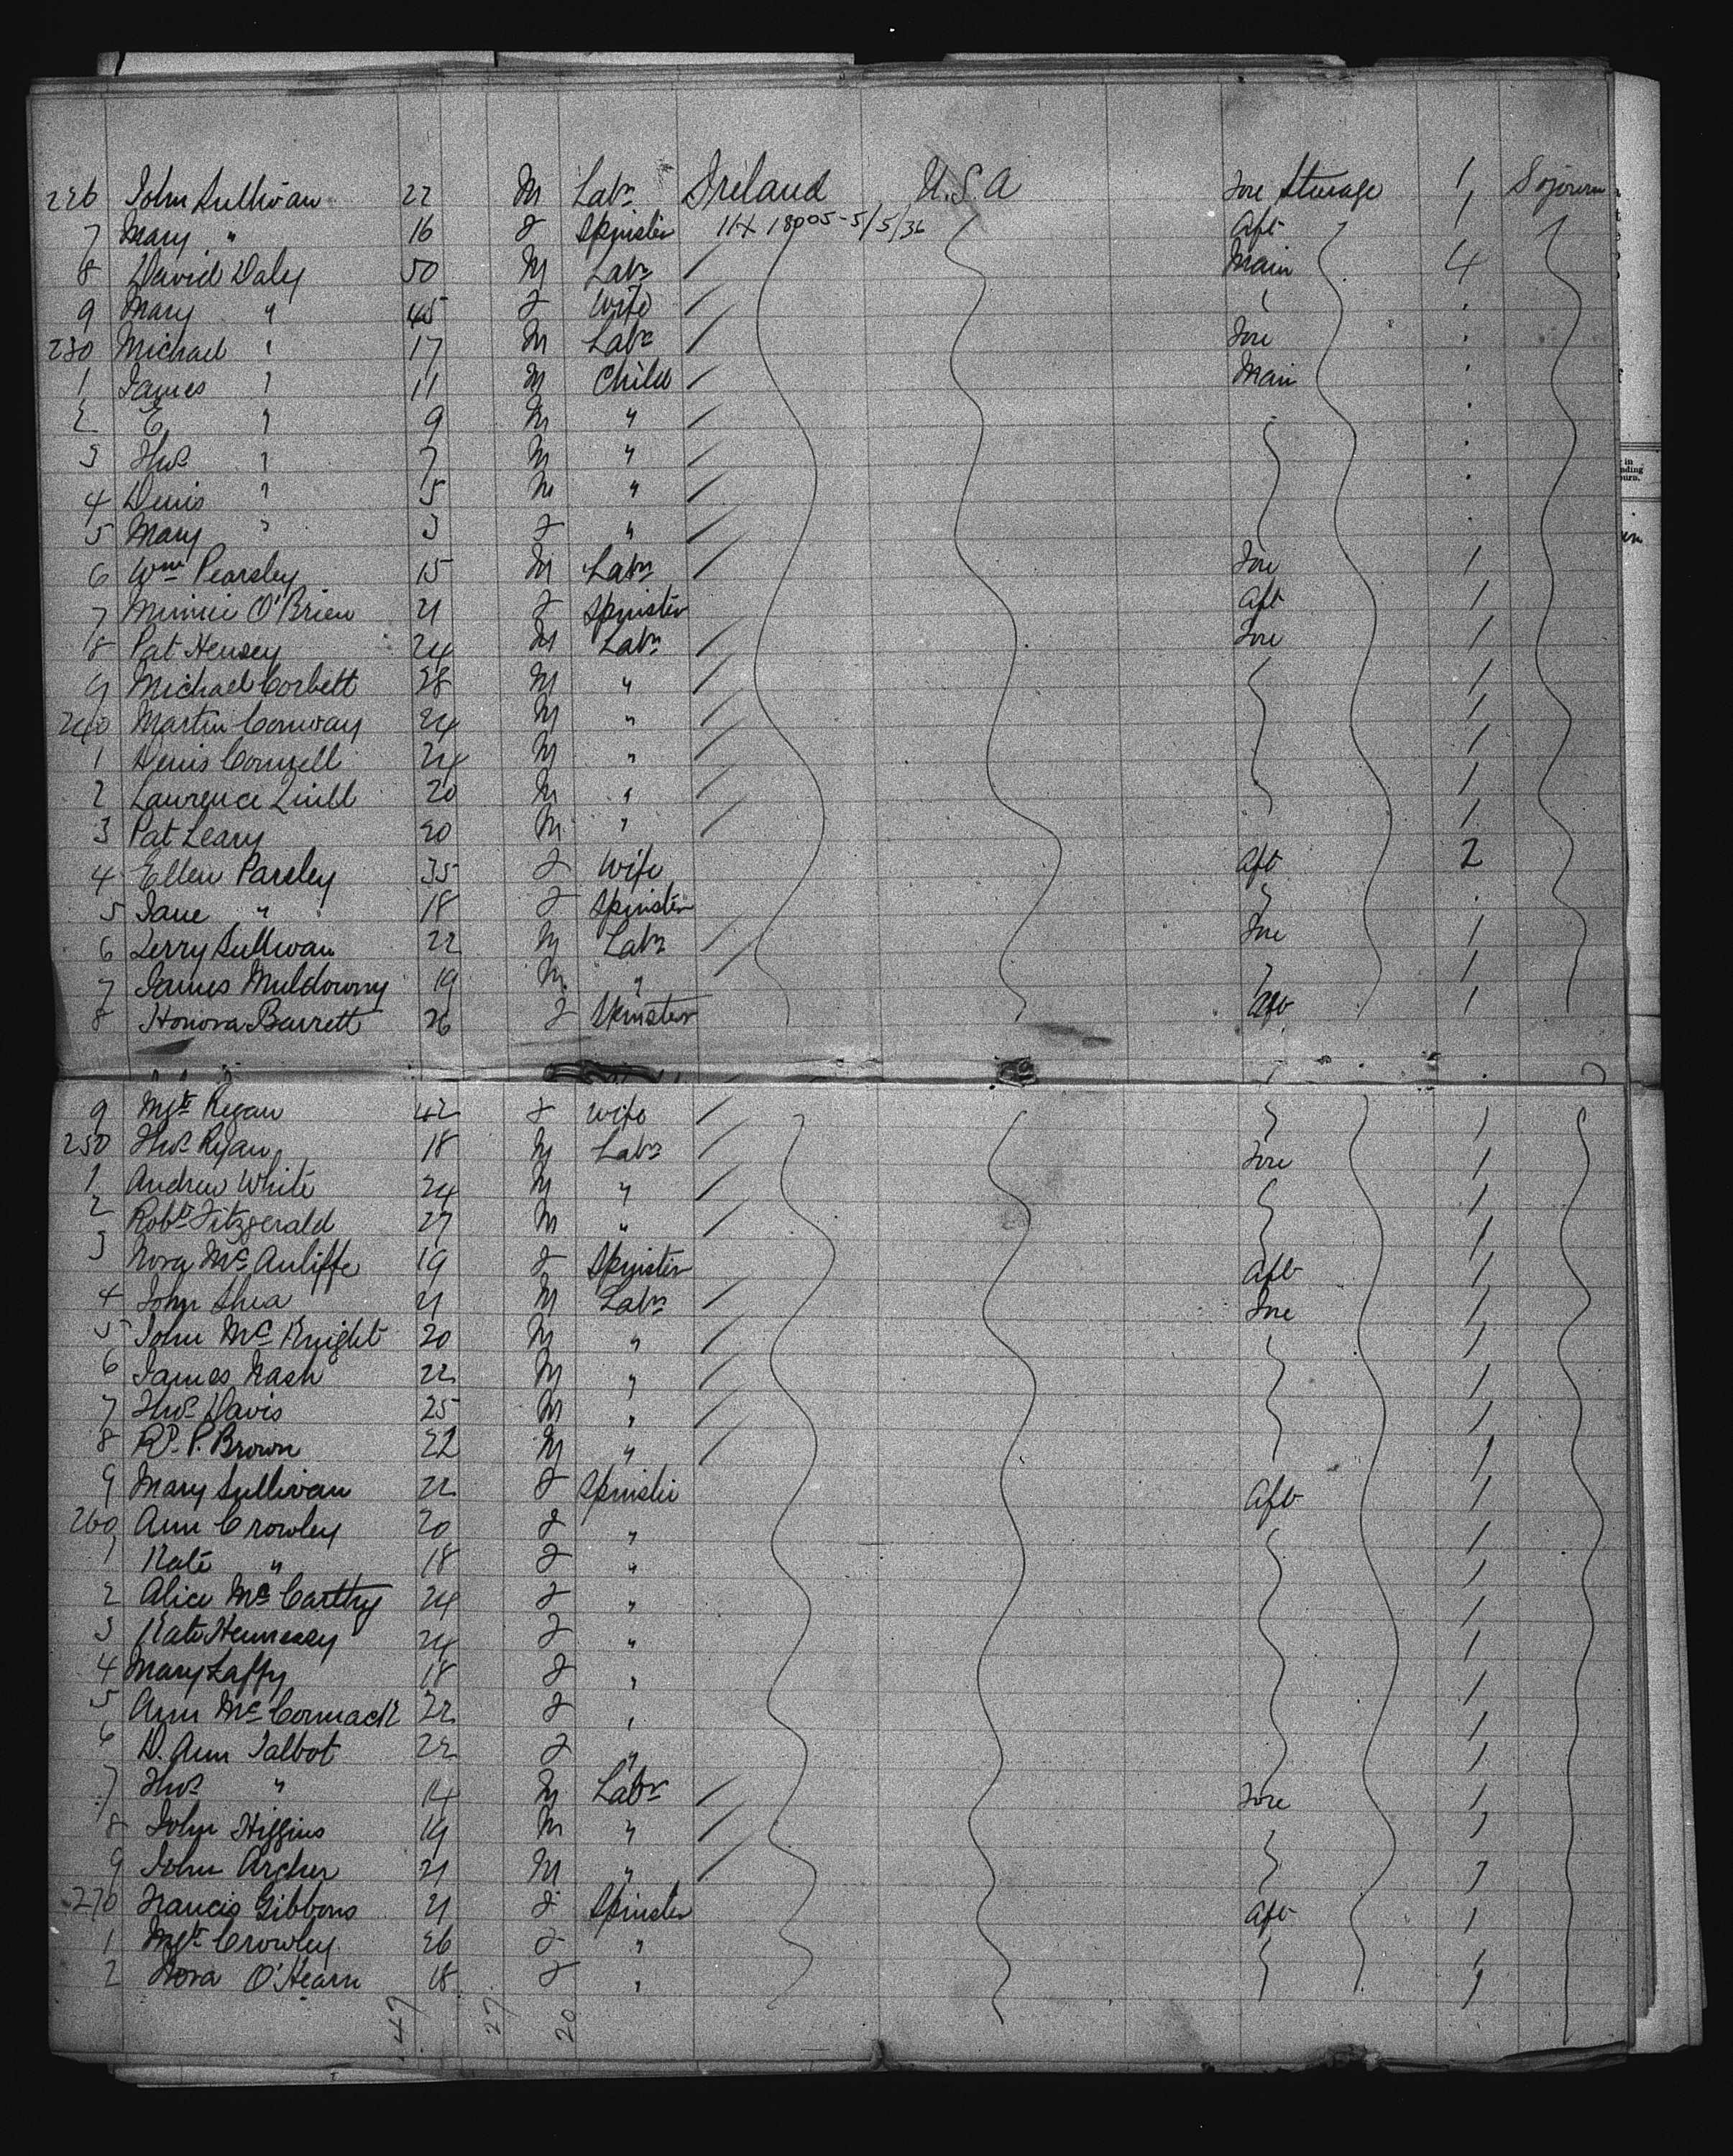 226 John Sullivan 22 M Labr Ireland U.S.A Fore Steerage 1 Sojourn
7 Mary " 16 F Spinster 11X 18005-5/5/36 Aft 1
8 David Daly 50 M Labr / Main 4
9 Mary " 45 F Wife /
230 Michael " 17 M Labr / Fore
1 James " 11 M Child / Main
2 E " 9 M " /
3 Thos " 7 M " /
4 Denis " 5 M " /
5 Mary " 3 F " /
6 Wm Pearsley 15 M Labr / Fore 1
7 Minnie O'Brien 21 F Spinster Aft 1
8 Pat Hensey 24 M Labr / Fore 1
9 Michael Corbett 28 M " / 1
240 Martin Conway 24 M " / 1
1 Denis Connell 24 M " / 1
2 Lawrence Quill 20 M " / 1
3 Pat Leary 20 M " / 1
4 Ellen Parsley 35 F Wife Aft 2
5 Jane " 18 F Spinster
6 Jerry Sullivan 22 M Labr / Fore 1
7 James Muldowny 19 M " / 1
8 Honora Barrett 26 F Spinster Aft 1
9 Mgt Regan 42 F Wife / 1
250 Thos Ryan 18 M Labr / Fore 1
1 Andrew White 24 M " / 1
2 Robt Fitzgerald 27 M " / 1
3 Nora McAuliffe 19 F Spinster Aft 1
4 John Shea 21 M Labr / Fore 1
5 John McKnight 20 M " / 1
6 James Nash 22 M " / 1
7 Thos Davis 25 M " / 1
8 Rd. P. Brown 22 M " / 1
9 Mary Sullivan 22 F Spinster Aft 1
260 Ann Crowley 20 F " 1
1 Kate " 18 F " 1
2 Alice McCarthy 24 F " 1
3 Kate Hennessy 24 F " 1
4 Mary Laffy 18 F " 1
5 Ann McCormack 22 F " 1
6 D. Ann Talbot 22 F " 1
7 Thos " 14 M Labr / Fore 1
8 John Higgins 19 M " / 1
9 John Archer 21 M " / 1
270 Francis Gibbons 21 F Spinster Aft 1
1 Mgt Crowley 26 F " 1
2 Nora O'Hearn 18 F " 1
47 27 20